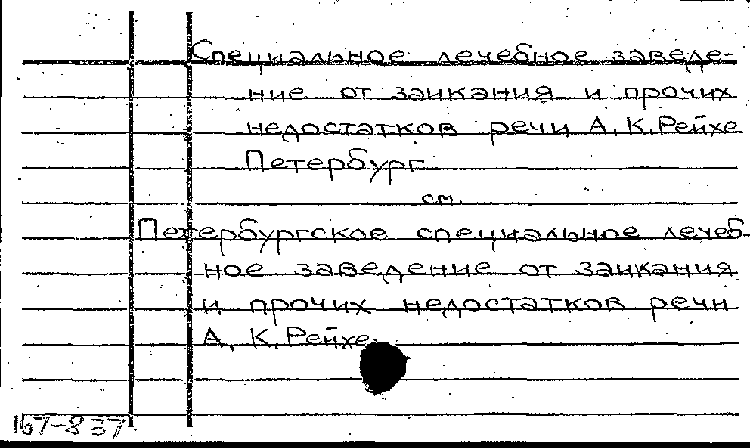 Специальное лечебное заведе-
ние от заикания и прочих
недостатков речи А. К. Рейхе
Петербург
см.
Петербургское специальное лечеб-
ное заведение от заикания
и прочих недостатков речи
А. К. Рейхе
167-837